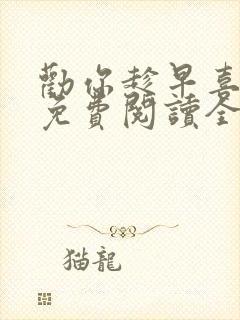 勸你趁早喜
免費閱讀全
猫龍